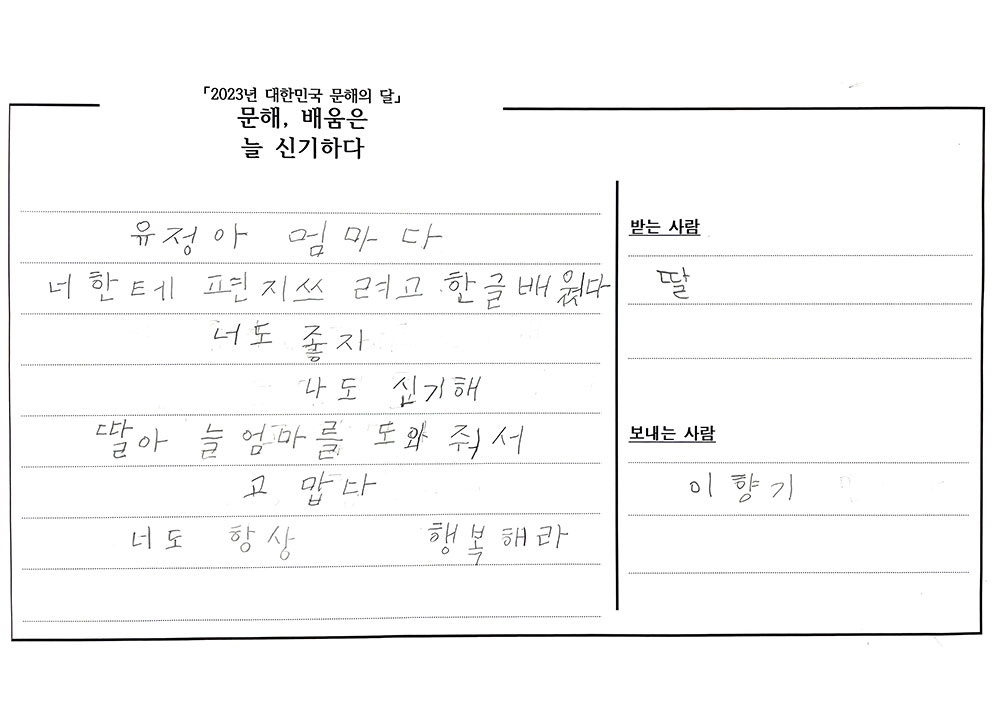 「2023년 대한민국 문해의 달」
문해, 배움은
늘 신기하다
유정아 엄마다
너한테 편지쓰려고 한글배웠다
너도 좋지
나도 신기해
딸아 늘 엄마를 도와줘서
고맙다
너도 항상 행복해라
받는 사람
딸
보내는 사람
이향기